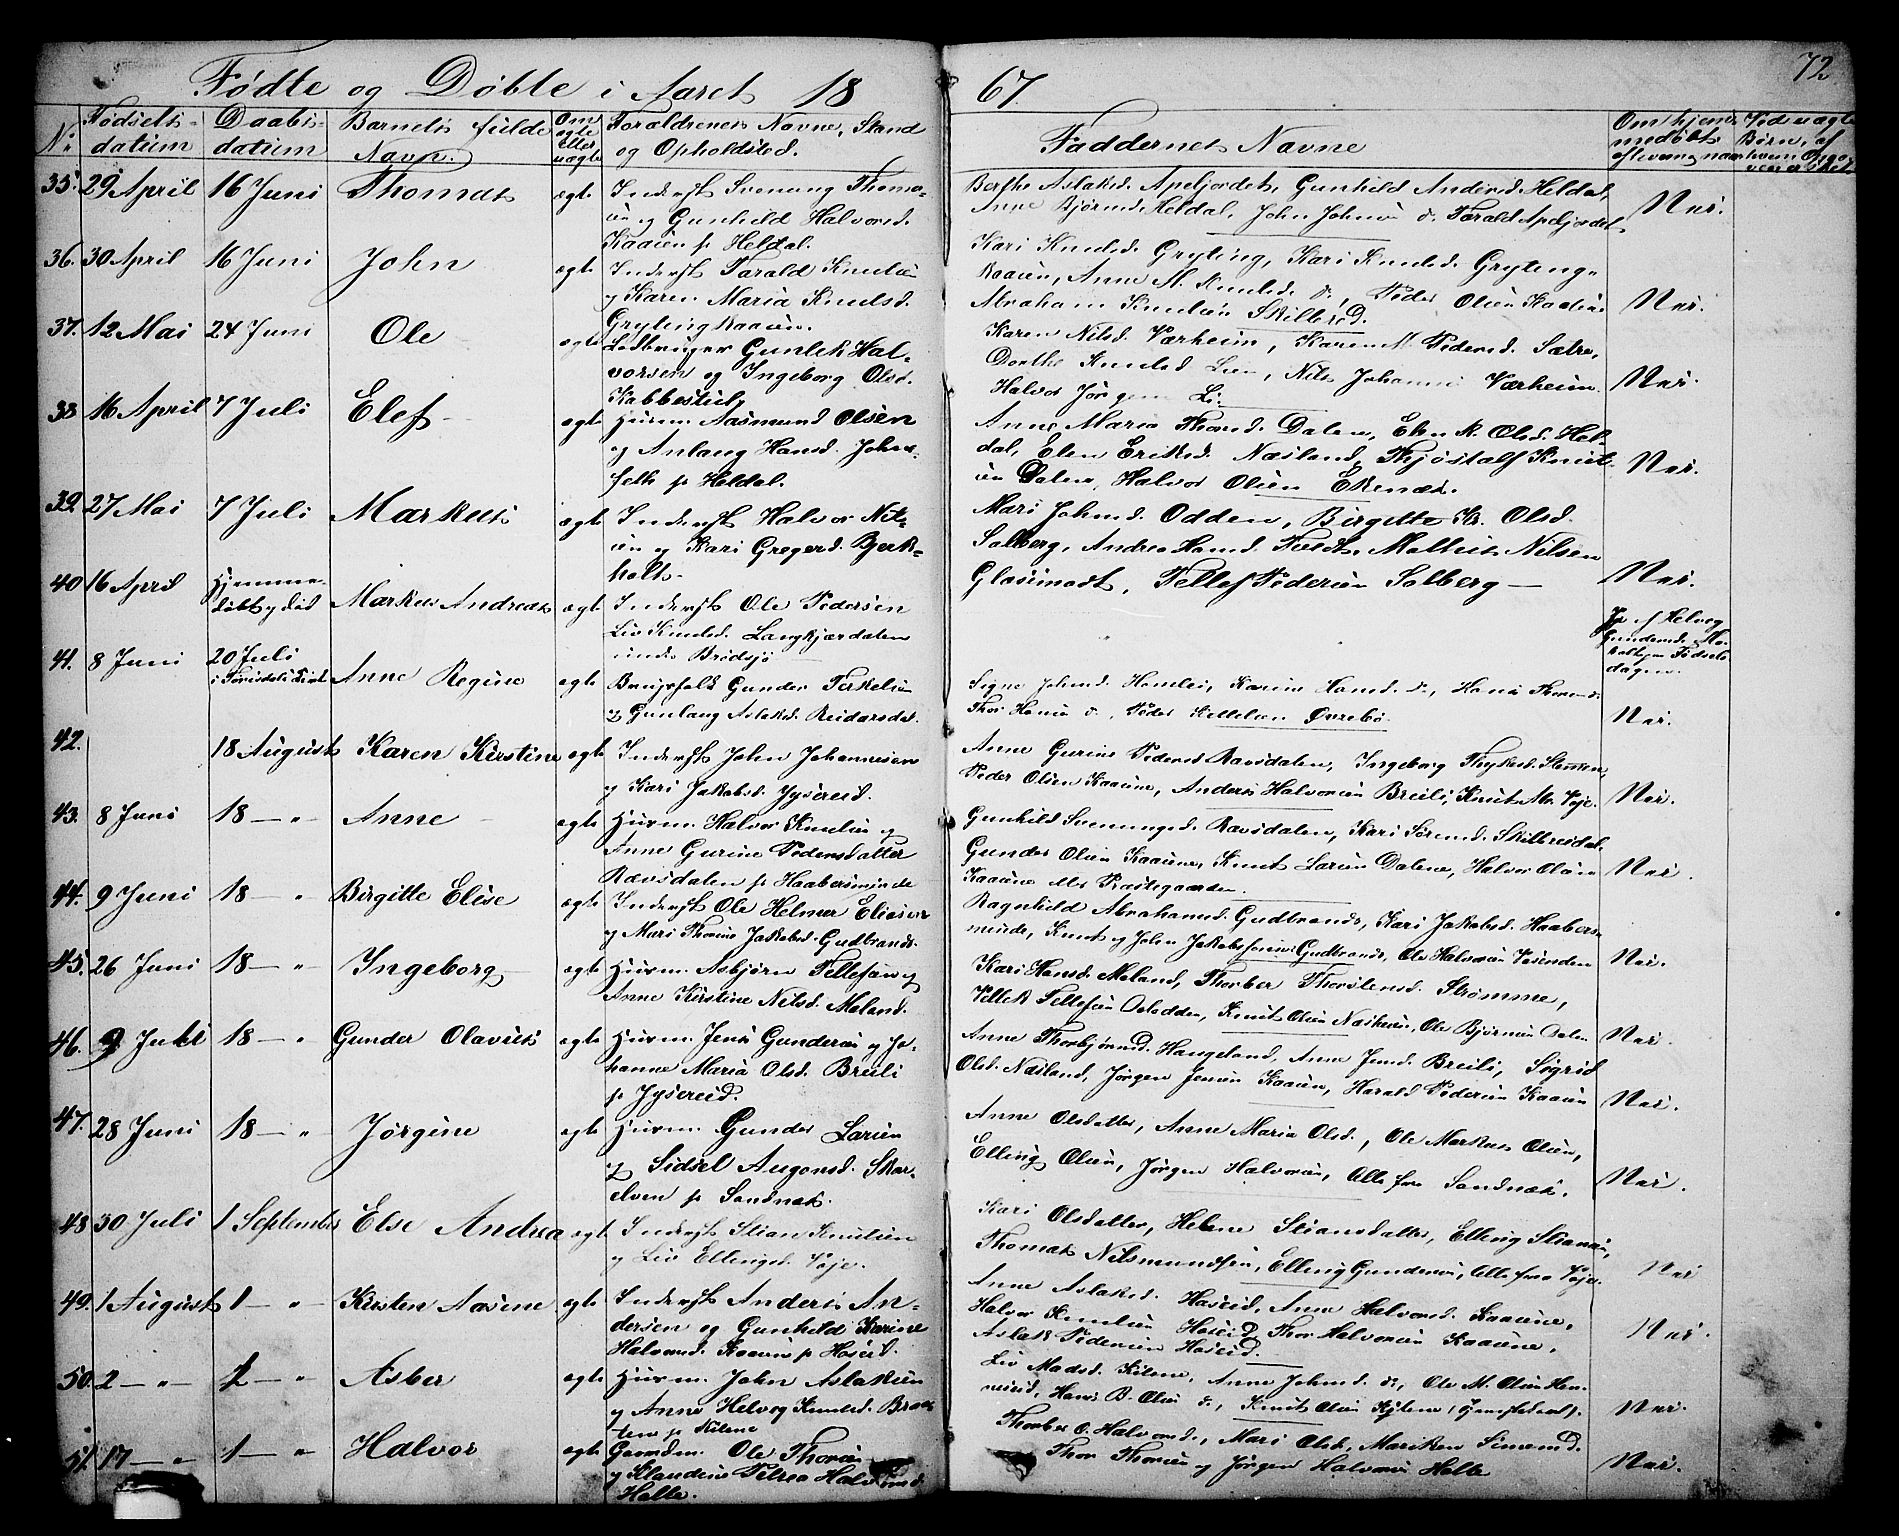 Fødte og Døbte i Aaret 18 67. 72
No Fødsels-datum Daabs-datum Barnets fulde Navn. Om ægte eller uægte Forældrenes Navne, Stand og Opholdsted. Faddernes Navne Om hjemmedøbt Ved uægte Børn, af
35. 29 April 16 Juni Thomas ægte Inderst Svenung Thoma-
sen og Gunhild Halvorsd.
Kaasen p. Heldal.
Berthe Aslaksd. Apeljordet, Gunhild Andersd. Heldal,
Anne Bjørnsd. Heldal, John Johnsen o. Tarald Apeljordet
Nei.
36. 30 April 16 Juni John ægte Inderst Tarald Knutsen
og Karen Maria Knutsd.
Gryting Kaasen.
Kari Knutsd. Gryting, Kari Knutsd. Gryting-
kaasen, Anne M. Knutsd. do, Peder Olsen Kaasen
Abraham Knutsen Skilbred.
Nei.
37. 12 Mai 24 Juni Ole ægte Lodbruger Gunlek Hal-
vorsen og Ingeborg Olsd.
Kabbestul
Karen Nilsd. Værheim, Karen M. Pedersd. Sætre,
Dorthe Knutsd. Lien, Nils Johannes Værheim
Halvor Jørgen Li.
Nei.
38 16 April 7 Juli Elef ægte Husm. Aasmund Olsen
og Anlaug Hansd. Johns-
feth p. Heldal.
Anne Maria Thorsd. Dalen, Elen K. Olsd. Hel-
dal, Elen Eriksd. Næsland, Thjøstalf Knut-
sen Dalen, Halvor Olsen Ekenæs.
Nei.
39. 27 Mai 7 Juli Markus ægte Inderst Halvor Nil-
sen og Kari Gregersd. Bjerk-
holt.
Mari Johnsd. Odden, Birgitte K. Olsd.
Solberg, Andrea Hansd. Tveidt, Mathis Nilsen
Glasimodt, Tellef Pedersen Solberg
Nei.
40 16 April Hjemme-
døbt og død Markus Andreas ægte Inderst Ole Pedersen
Liv Knutsd. Langkjærdalen
under Bredsjø
Ja af Helvig
Gundersd.
Fødsels-
dagen.
41. 8 Juni 20 Juli Anne Regine ægte Brugsfolk Gunder Terkelsen
og Gunlaug Aslaksd. Reidarsdal.
Signe Johnsd. Homlei, Karine Hansd. do, Hans Thorsen do
Thor Hansen do, Peder Kittelsen Øvrebø.
Nei.
42. 18 August Karen Kirstine ægte Inderst John Johannesen
og Kari Jakobsd. Jysereid.
Anne Gurine Pedersd. Ravsdalen, Ingeborg Thykesd.
Peder Olsen Kaasene, Anders Halvorsen Breili, Knut Voje.
Nei.
43. 8 Juni 18 — " Anne ægte Husm. Halvor Knutsen og
Anne Gurine Pedersdatter
Ravsdalen p. Haabersminde
Gunhild Svenungsd. Ravsdalen, Kari Sørensd. Skilbreidal,
Gunder Olsen Kaasene, Knut Larsen Dalene, Halvor Olsen
Kaasene Præstegaarden.
Nei.
44. 9 Juni 18 — " Birgitte Elise ægte Inderst Ole Helmer Eliesen
og Mari Thorine Jakobsd. Gudbrands.
Ragnhild Abrahamsd. Gudbrands, Kari Jakobsd. Haabers-
minde, Knut og John Jakobsen Gudbrands, Ole Halvorsen
Nei.
45. 26 Juni 18 — " Ingeborg ægte Husm. Asbjørn Tellefsen og
Anne Kirstine Nilsd. Meland.
Kari Hansd. Meland, Thorber Thorstensd. Strømme,
Tellef Tellefsen Oslodden, Knut Olsen Næsheim, Ole Bjørnsen Dalen
Nei.
46. 9 Juli 18 — " Gunder Olavus ægte Husm. Jens Gundersen og Jo-
hanne Maria Olsd. Breili
p. Jysereid.
Anne Thorbjørnsd. Haugeland, Anne Jensd. Breili, Sigrid
Olsd. Næsland, Jørgen Jensen Kaasen, Harald Pedersen Kaasen
Nei.
47. 28 Juni 18 — " Jørgine ægte Husm. Gunder Larsen
og Sidsel Augonsd. Skar-
elven p. Sandnæs.
Anne Olsdatter, Anne Maria Olsd., Ole Markus Olsen,
Elling Olsen, Jørgen Halvorsen, Alle fra Sandnæs.
Nei.
48 30 Juli 1 September Else Andrea ægte Inderst Stian Knutsen
og Liv Ellingsd. Voje.
Kari Olsdatter, Helene Stiansdatter, Elling Stiansen,
Thomas Nilsmundsen, Elling Gundersen, Alle fra Voje.
Nei
49. 1 August 1 — " Kirsten Aasine ægte Inderst Anders An-
dersen og Gunhild Karine
Halvorsd. Kaasen p. Hoseid.
Anne Aslaksd. Hoseid, Anne Halvorsd. Kaasene,
Halvor Knutsen Hoseid, Thor Halvorsen Kaasene,
Aslak Pedersen Hoseid.
Nei.
50. 2 — " 1 — " Asber ægte Husm. John Aslaksen
og Anne Helvig Knutsd. Braa-
ten p. Kilene
Liv Madsd. Kilene, Anne Johnsd. do, Ole M. Olsen Hen-
neseid, Hans B. Olsen do, Knut Olsen Kilene
Nei.
51. 17 — " 1 — " Halvor ægte Gaardm. Ole Thorsen
og Klaudine Petrea Halvorsd.
Helle.
Thorber O. Halvorsd., Mari Olsd., Mariken Simonsd.
Thor Thorsen og Jørgen Halvorsen Helle
Nei.